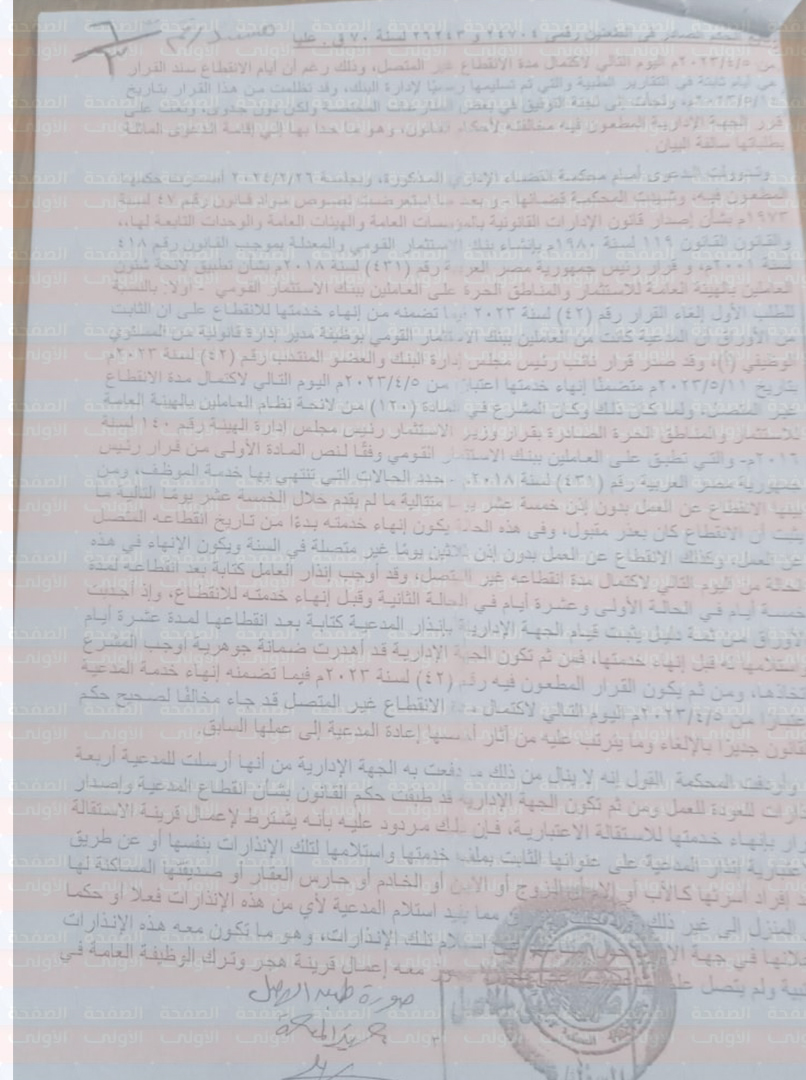 تابع الحكم الصادر في الطعنين رقمي ٢٤٧٠٤ و ٢٦٢٤٣ لسنة ٧٠ ق . عليا
من ٢٠٢٣/٤/٥م اليوم التالي لاكتمال مدة الانقطاع غير المتصل، وذلك رغم أن أيام الانقطاع سند القرار
هي أيام ثابتة في التقارير الطبية والتي تم تسليمها رسميًا لإدارة البنك، وقد تظلمت من هذا القرار بتاريخ
ولجأت إلى لجنة التوفيق في بعض المنازعات المختصة ولكن دون جدوى، ونعت على
قرار الجهة الإدارية المطعون فيه مخالفته لأحكام القانون، وهو ما حدا بها إلى إقامة الدعوى الماثلة
بطلباتها سالفة البيان .
وتدوولت الدعوى أمام محكمة القضاء الإداري المذكورة، وبجلسة ٢٠٢٤/٢/٢٦ أصدرت حكمها
المطعون فيه، وشيدت المحكمة قضائها - و بعد ما استعرضت نصوص مواد قانون رقم ٤٧ لسنة
١٩٧٣م بشأن إصدار قانون الإدارات القانونية بالمؤسسات العامة والهيئات العامة والوحدات التابعة لها،.
والقانون القانون ١١٩ لسنة ١٩٨٠م بإنشاء بنك الاستثمار القومي والمعدلة بموجب القانون رقم ٤١٨
لسنة ٢٠٠١م، و قرار رئيس جمهورية مصر العربية رقم (٤٣١) لسنة ٢٠١٨م بشأن تطبيق لائحة شئون
العاملين بالهيئة العامة للاستثمار والمناطق الحرة على العاملين ببنك الاستثمار القومي - أولًا: بالنسبة
للطلب الأول إلغاء القرار رقم (٤٢) لسنة ٢٠٢٣ فيما تضمنه من إنهاء خدمتها للانقطاع على أن الثابت
من الأوراق أن المدعية كانت من العاملين ببنك الاستثمار القومي بوظيفة مدير إدارة قانونية من المستوي
الوظيفي (أ)، وقد صدر قرار نائب رئيس مجلس إدارة البنك والعضو المنتدب رقم (٤٢) لسنة ٢٠٢٣م
بتاريخ ٢٠٢٣/٥/١١م متضمنًا إنهاء خدمتها اعتبارًا من ٢٠٢٣/٤/٥م اليوم التالي لاكتمال مدة الانقطاع
غير المتصل، ولما كان ذلك وكان المشرع في المادة (١٢٠) من لائحة نظام العاملين بالهيئة العامة
للاستثمار والمناطق الحرة الصادرة بقرار وزير الاستثمار رئيس مجلس إدارة الهيئة رقم ١٤٠ لسنة
٢٠١٦م- والتي تطبق على العاملين ببنك الاستثمار القومي وفقًا لنص المادة الأولى من قرار رئيس
جمهورية مصر العربية رقم (٤٣١) لسنة ٢٠١٨م - حدد الحالات التي تنتهي بها خدمة الموظف، ومن
بينها الانقطاع عن العمل بدون إذن خمسة عشر يومًا متتالية ما لم يقدم خلال الخمسة عشر يومًا التالية ما
يثبت أن الانقطاع كان بعذر مقبول، وفي هذه الحالة يكون إنهاء خدمته بدءًا من تاريخ انقطاعه المتصل
عن العمل، وكذلك الانقطاع عن العمل بدون إذن ثلاثين يومًا غير متصلة في السنة ويكون الإنهاء في هذه
الحالة من اليوم التالي لاكتمال مدة انقطاعه غير المتصل، وقد أوجب إنذار العامل كتابة بعد انقطاعه لمدة
خمسة أيام في الحالة الأولى وعشرة أيام في الحالة الثانية وقبل إنهاء خدمته للانقطاع، وإذ أجدبت
الأوراق من ثمة دليل يثبت قيام الجهة الإدارية بإنذار المدعية كتابة بعد انقطاعها لمدة عشرة أيام
واستلامها له قبل إنهاء خدمتها، فمن ثم تكون الجهة الإدارية قد أهدرت ضمانة جوهرية أوجب المشرع
اتخاذها، ومن ثم يكون القرار المطعون فيه رقم (٤٢) لسنة ٢٠٢٣م فيما تضمنه إنهاء خدمة المدعية
اعتبارًا من ٢٠٢٣/٤/٥م اليوم التالي لاكتمال مدة الانقطاع غير المتصل قد جاء مخالفًا لصحيح حكم
القانون جديرًا بالإلغاء وما يترتب عليه من آثار أخصها إعادة المدعية إلى عملها السابق.
وأردفت المحكمة القول إنه لا ينال من ذلك ما دفعت به الجهة الإدارية من أنها أرسلت للمدعية أربعة
إنذارات للعودة للعمل ومن ثم تكون الجهة الإدارية قد طبقت حكم القانون بشأن انقطاع المدعية وإصدار
قرار بإنهاء خدمتها للاستقالة الاعتبارية، فإن ذلك مردود عليه بأنه يشترط لإعمال قرينة الاستقالة
الاعتبارية إنذار المدعية على عنوانها الثابت بملف خدمتها واستلامها لتلك الإنذارات بنفسها أو عن طريق
أحد إفراد أسرتها كالأب أو الأم أو الزوج أو الابن أو الخادم أو حارس العقار أو صديقتها المساكنة لها
المنزل إلى غير ذلك مما يفيد استلام المدعية لأي من هذه الإنذارات فعلًا أو حكما
استلام تلك الإنذارات، وهو ما تكون معه هذه الإنذارات
ولم يتصل معه إعمال قرينة هجر وترك الوظيفة العامة في
صورة طبق الأصل